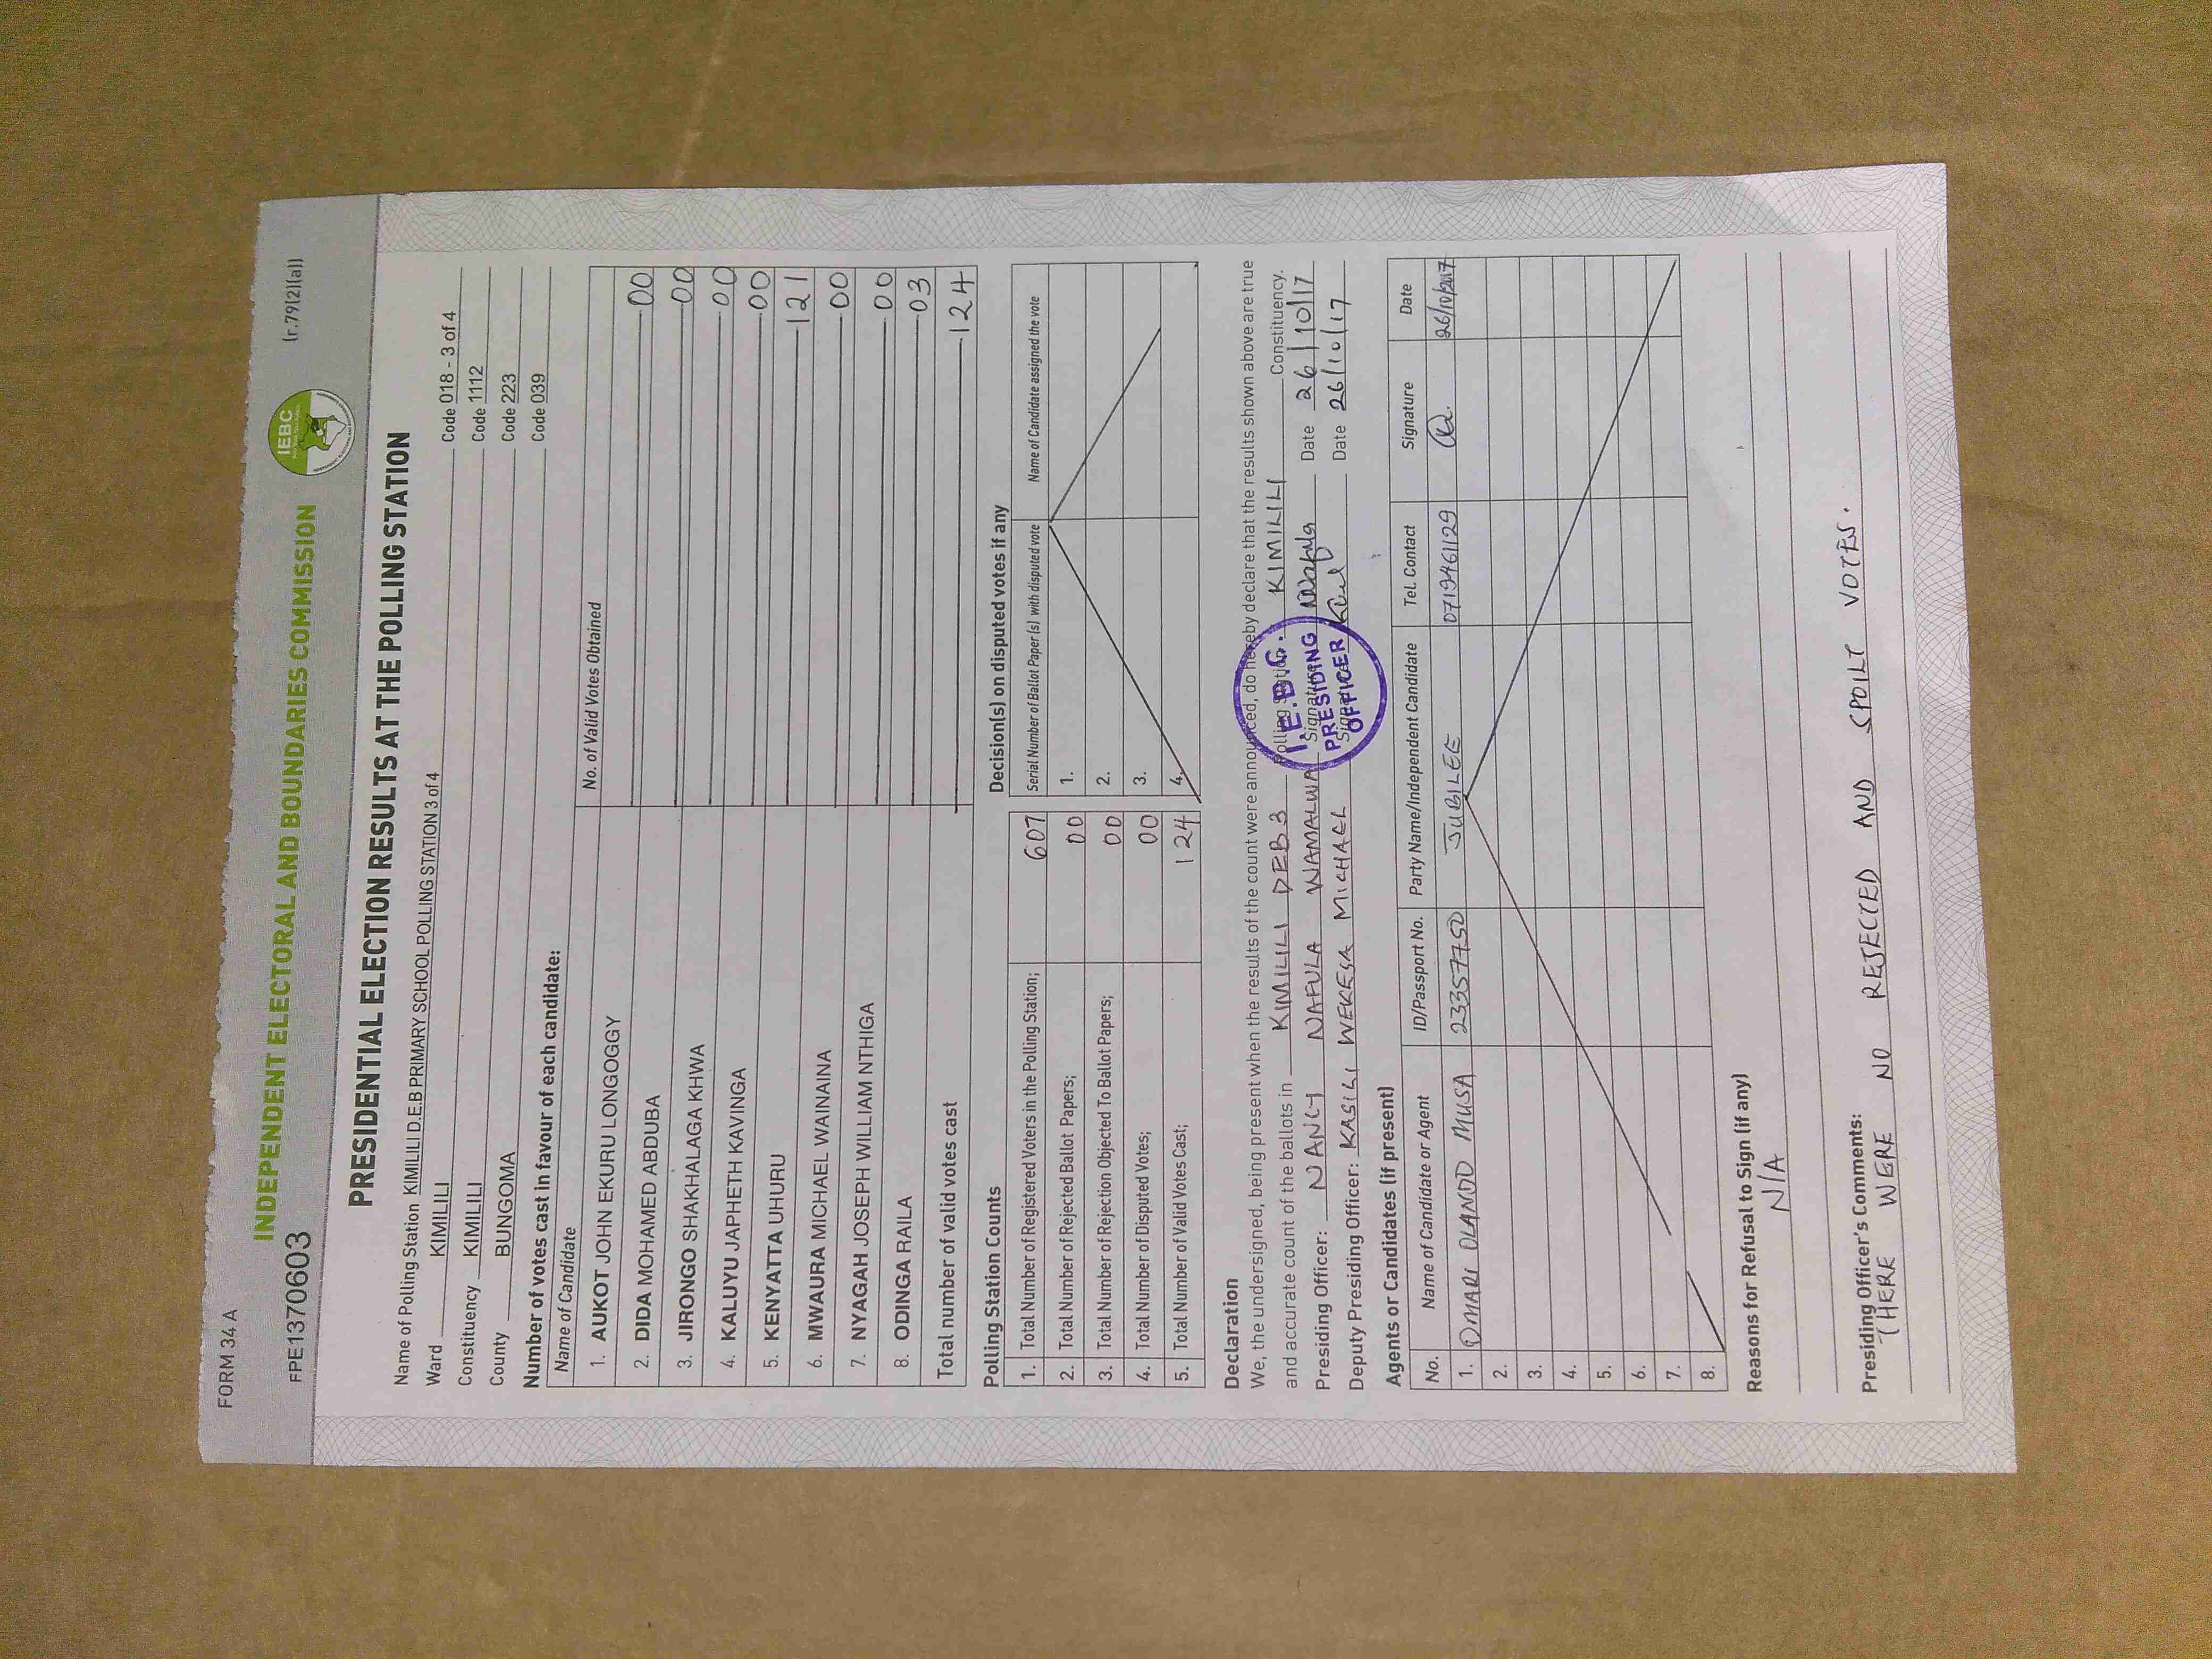 FORM 34 A
(r.79(2)(a))
INDEPENDENT ELECTORAL AND BOUNDARIES COMMISSION
IEBC
FPE1370603
PRESIDENTIAL ELECTION RESULTS AT THE POLLING STATION
Name of Polling Station KIMILILI D.E.B PRIMARY SCHOOL POLLING STATION 3 of 4 Code 018 - 3 of 4
Ward KIMILILI Code 1112
Constituency KIMILILI Code 223
County BUNGOMA Code 039
Number of votes cast in favour of each candidate:
Name of Candidate No. of Valid Votes Obtained
1. AUKOT JOHN EKURU LONGOGGY 00
2. DIDA MOHAMED ABDUBA 00
3. JIRONGO SHAKHALAGA KHWA 00
4. KALUYU JAPHETH KAVINGA 00
5. KENYATTA UHURU 121
6. MWAURA MICHAEL WAINAINA 00
7. NYAGAH JOSEPH WILLIAM NTHIGA 00
8. ODINGA RAILA 03
Total number of valid votes cast 124
Polling Station Counts
1. Total Number of Registered Voters in the Polling Station; 607
2. Total Number of Rejected Ballot Papers; 00
3. Total Number of Rejection Objected To Ballot Papers; 00
4. Total Number of Disputed Votes; 00
5. Total Number of Valid Votes Cast; 124
Decision(s) on disputed votes if any
Serial Number of Ballot Paper(s) with disputed vote Name of Candidate assigned the vote
1.
2.
3.
4.
Declaration
We, the undersigned, being present when the results of the count were announced, do hereby declare that the results shown above are true
and accurate count of the ballots in KIMILILI DEB 3 Polling Station. KIMILILI Constituency.
Presiding Officer: NANCY NAFULA WAMALWA Signature Nafula Date 26/10/17
Deputy Presiding Officer: KASILI WEKESA MICHAEL Signature Date 26/10/17
I.E.B.C.
PRESIDING
OFFICER
Agents or Candidates (if present)
No. Name of Candidate or Agent ID/Passport No. Party Name/Independent Candidate Tel. Contact Signature Date
1. OMARI OLAMOD MUSA 23357750 JUBILEE 0719461129 26/10/2017
2.
3.
4.
5.
6.
7.
8.
Reasons for Refusal to Sign (if any)
N/A
Presiding Officer's Comments:
THERE WERE NO REJECTED AND SPOILT VOTES.